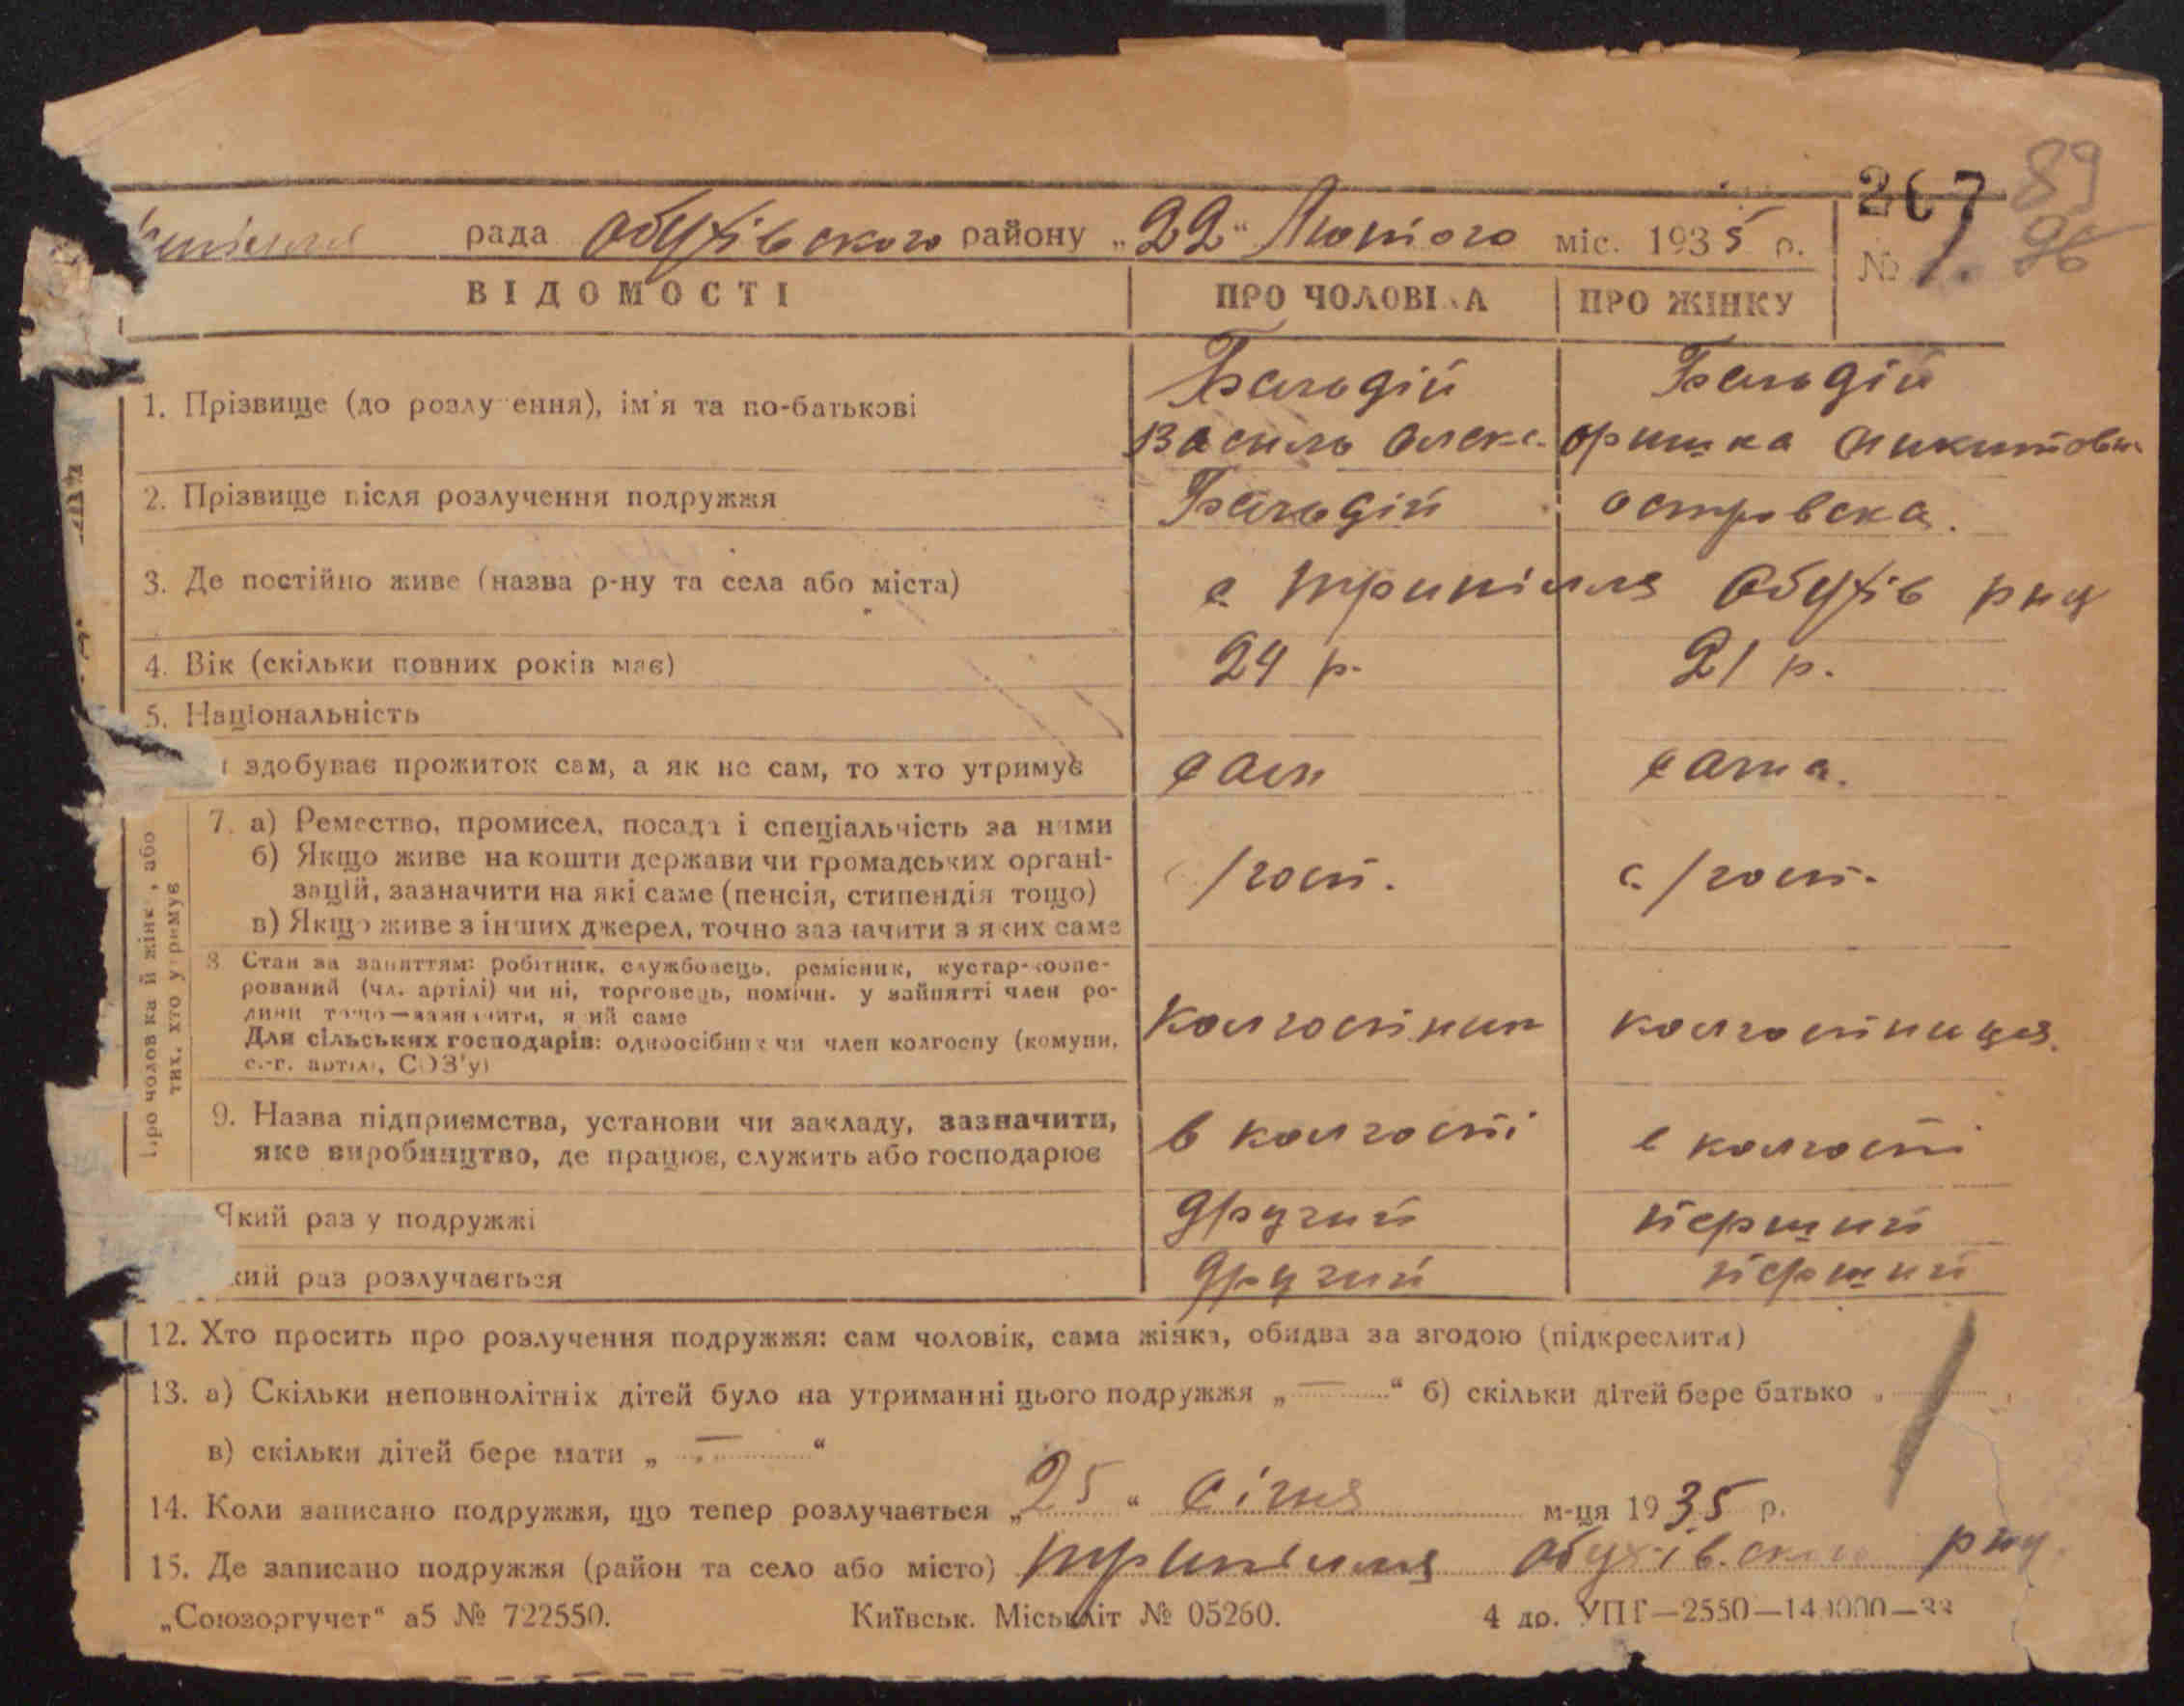 267 89
рада Обухівського району „22“ Лютого міс. 1935 р. № 1. 96
ВІДОМОСТІ ПРО ЧОЛОВІКА ПРО ЖІНКУ
1. Прізвище (до розлучення), ім'я та по-батькові Бальдій Бальдій
Василь Олекс. Оришка Микитовн
2. Прізвище після розлучення подружжя Бальдій Островска.
3. Де постійно живе (назва р-ну та села або міста) с. Трипілля Обухів рну
4. Вік (скільки повних років має) 24 р. 21 р.
5. Національність
здобуває прожиток сам, а як не сам, то хто утримує сам сама.
Про чоловіка й жінк , або тих, хто утримує
7. а) Ремество, промисел, посада і спеціальність за ними
б) Якщо живе на кошти держави чи громадських органі-
зацій, зазначити на які саме (пенсія, стипендія тощо) с/госп. с/госп.
в) Якщо живе з інших джерел, точно зазначити з яких саме
8. Стан за заняттям: робітник, службовець, ремісник, кустар-коопе-
рований (чл. артілі) чи ні, торговець, помічн. у зайнятті член ро-
дини тощо—зазначити, який саме колгоспник колгоспниця.
Для сільських господарів: одноосібник чи член колгоспу (комуни,
с.-г. артілі, СОЗ'у)
9. Назва підприємства, установи чи закладу, зазначити, в колгоспі в колгоспі
яке виробництво, де працює, служить або господарює
Який раз у подружжі другий перший
кий раз розлучається другий перший
12. Хто просить про розлучення подружжя: сам чоловік, сама жінка, обидва за згодою (підкреслити)
13. а) Скільки неповнолітніх дітей було на утриманні цього подружжя „—“ б) скільки дітей бере батько „
в) скільки дітей бере мати „—“
14. Коли записано подружжя, що тепер розлучається „25“ січня м-ця 1935 р.
15. Де записано подружжя (район та село або місто) Трипілля Обухівського рну.
„Союзоргучет“ а5 № 722550. Київськ. Міськліт № 05260. 4 до. УПГ—2550—140000—33